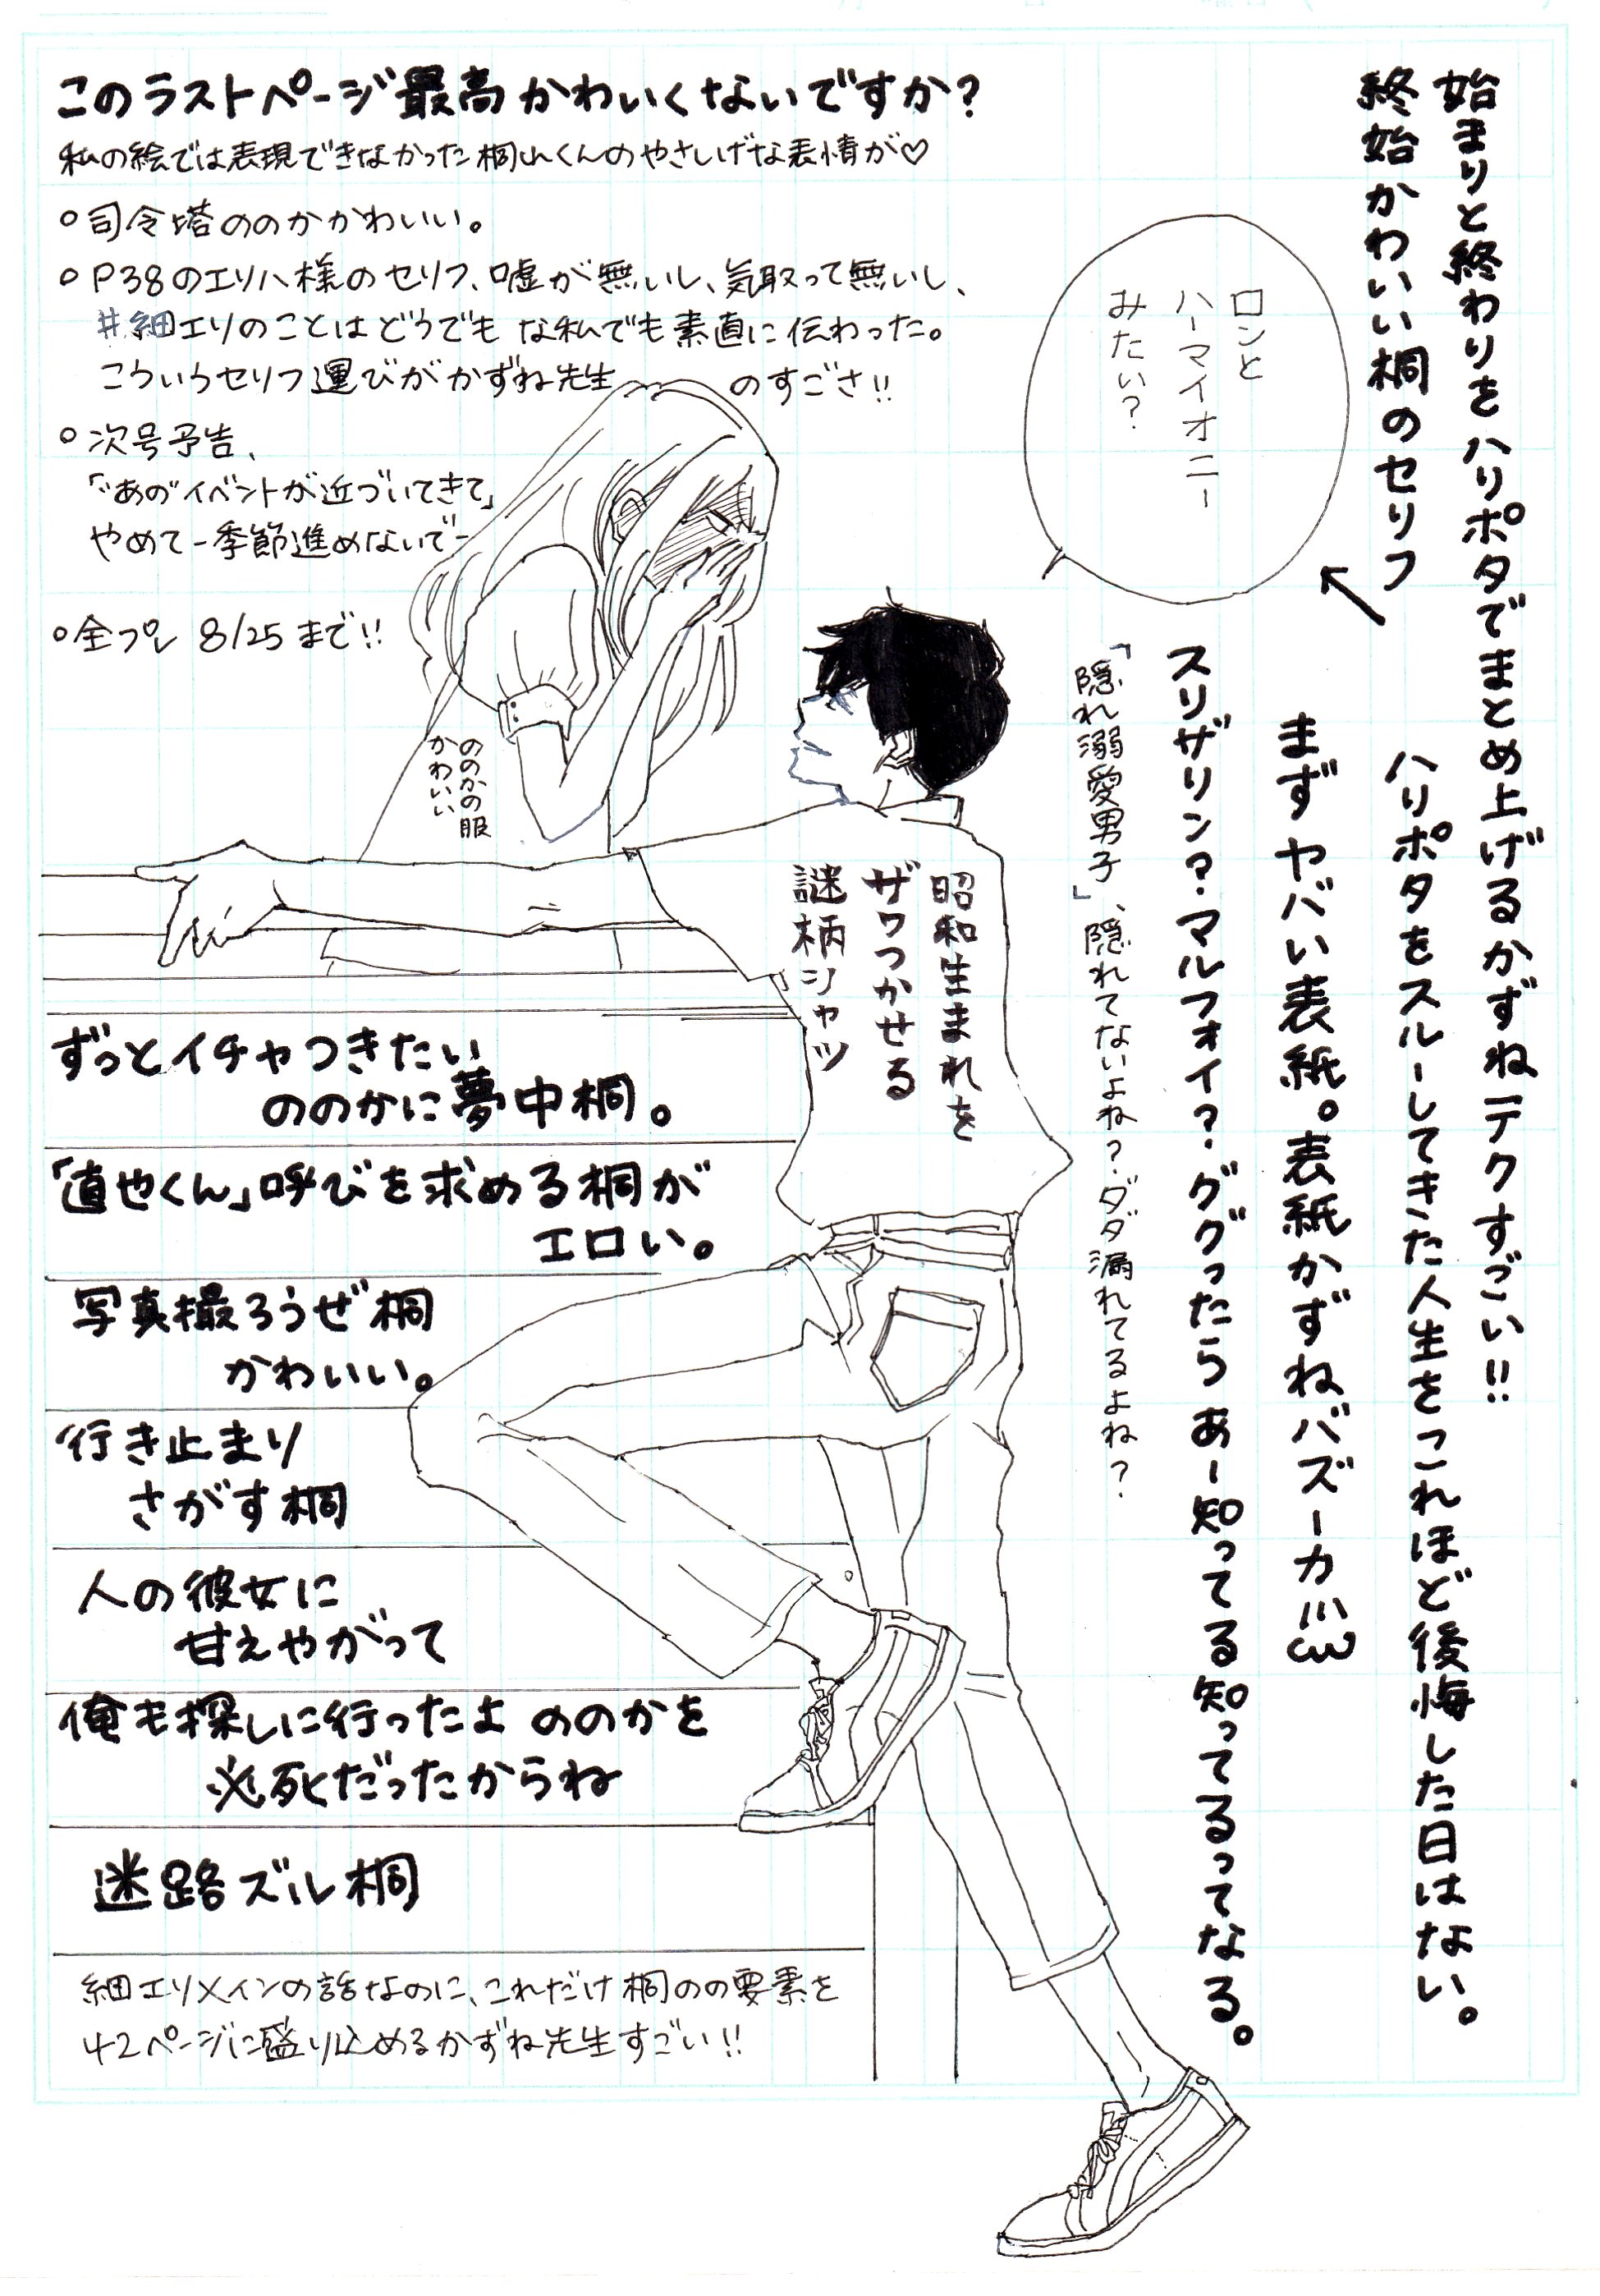 始まりと終わりをハリポタでまとめ上げるかずねテクすごい!!
終始かわいい桐のセリフ
ハリポタをスルーしてきた人生をこれほど後悔した日はない。
まずヤバい表紙。表紙かずねバズーカ
スリザリン?マルフォイ?ググったらあー知ってる知ってるってなる。
「隠れ溺愛男子」、隠れてないよね?ダダ漏れてるよね?
ロンと
ハーマイオニー
みたい?
このラストページ最高かわいくないですか?
私の絵では表現できなかった桐山くんのやさしげな表情が♡
○司令塔ののかかわいい。
○P38のエリハ様のセリフ、嘘が無いし、気取って無いし、
#細エリのことはどうでも な私でも素直に伝わった。
こういうセリフ運びがかずね先生のすごさ!!
○次号予告、
「"あの"イベントが近づいてきて」
やめてー季節進めないでー
○全プレ 8/25まで!!
ののかの服
かわいい
昭和生まれを
ザワつかせる
謎柄シャツ
ずっとイチャつきたい
ののかに夢中桐。
「直也くん」呼びを求める桐が
エロい。
写真撮ろうぜ桐
かわいい。
行き止まり
さがす桐
人の彼女に
甘えやがって
俺も探しに行ったよ ののかを
必死だったからね
迷路ズル桐
細エリメインの話なのに、これだけ桐のの要素を
42ページに盛り込めるかずね先生すごい!!